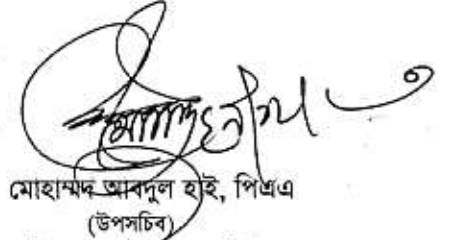 মোহাম্মদ আবদুল হাই, পিএএ
(উপসচিব)